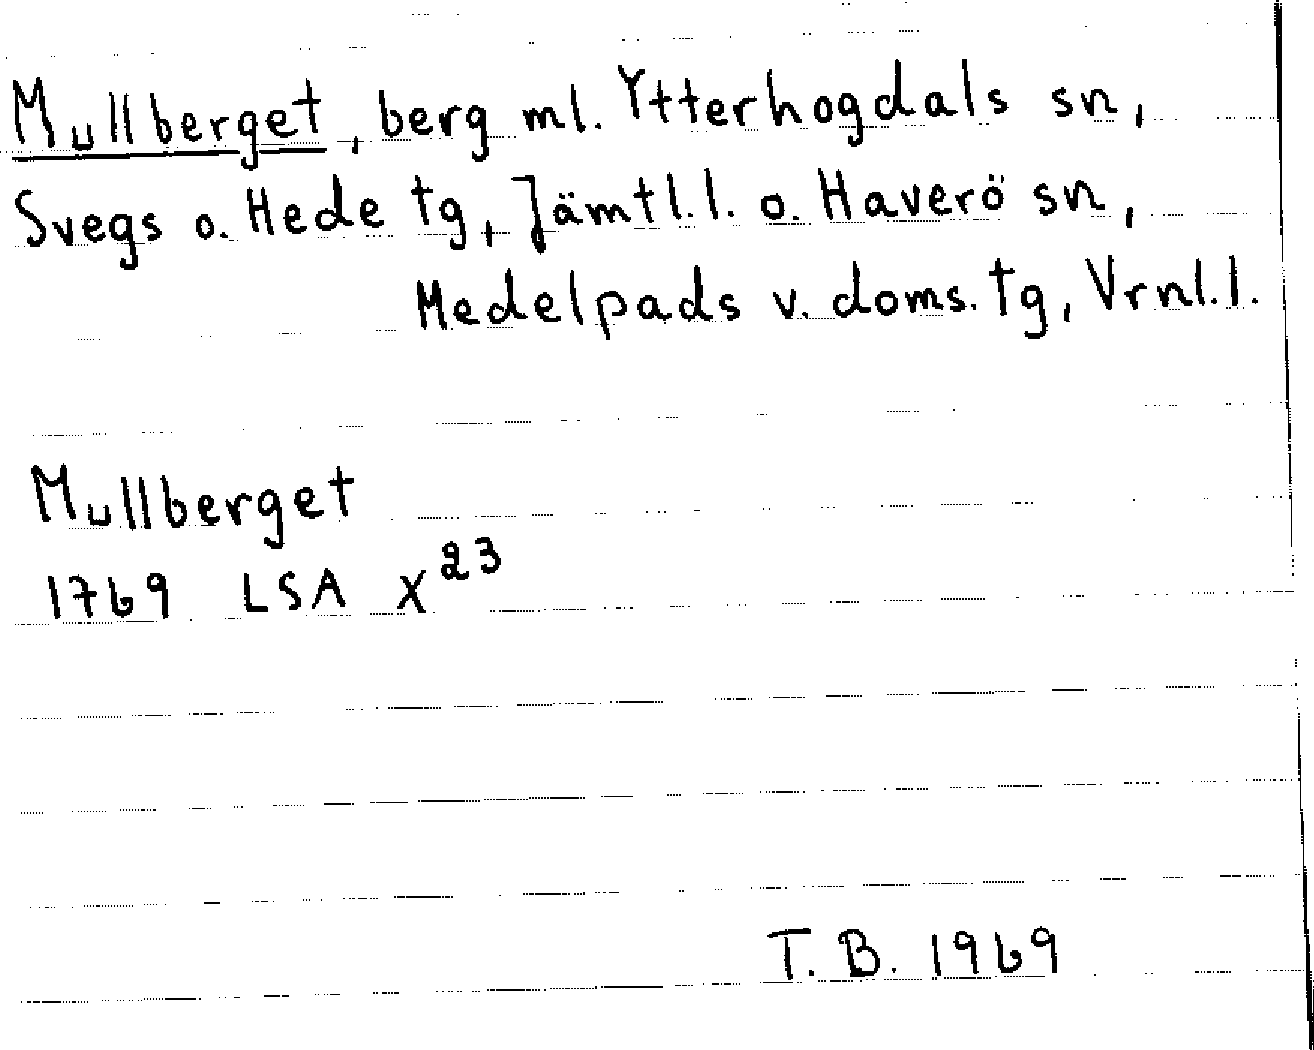 Mullberget, berg ml. Ytterhogdals sn,
Svegs o. Hede tg, Jämtl.l. o. Haverö sn,
Medelpads v. doms. tg, Vrnl.l.
Mullberget
1769 LSA X²³
T.B. 1969